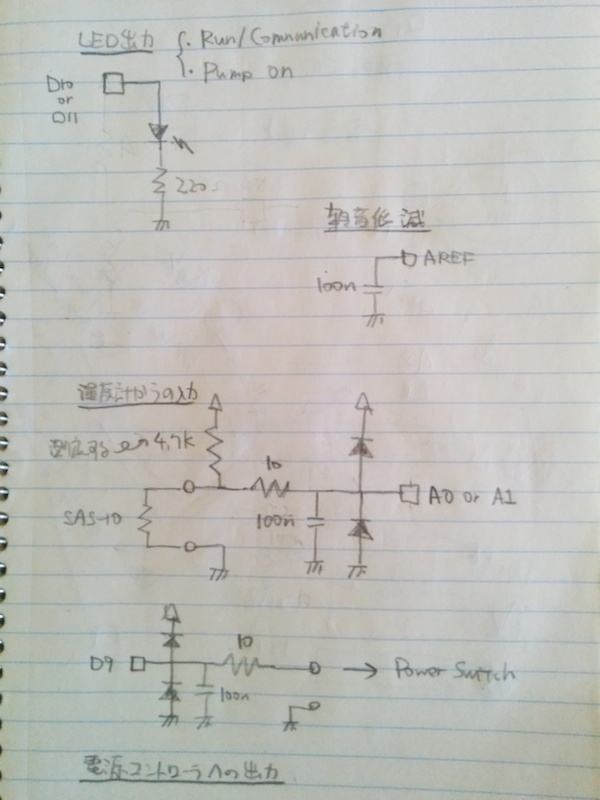 LED出力
・Run/Communication
・Pump on
D10
or
D11
220
雑音低減
100n
AREF
温度計からの入力
4.7K
10
SAS-10
100n
A0 or A1
D9
10
100n
→ Power Switch
電源コントローラへの出力